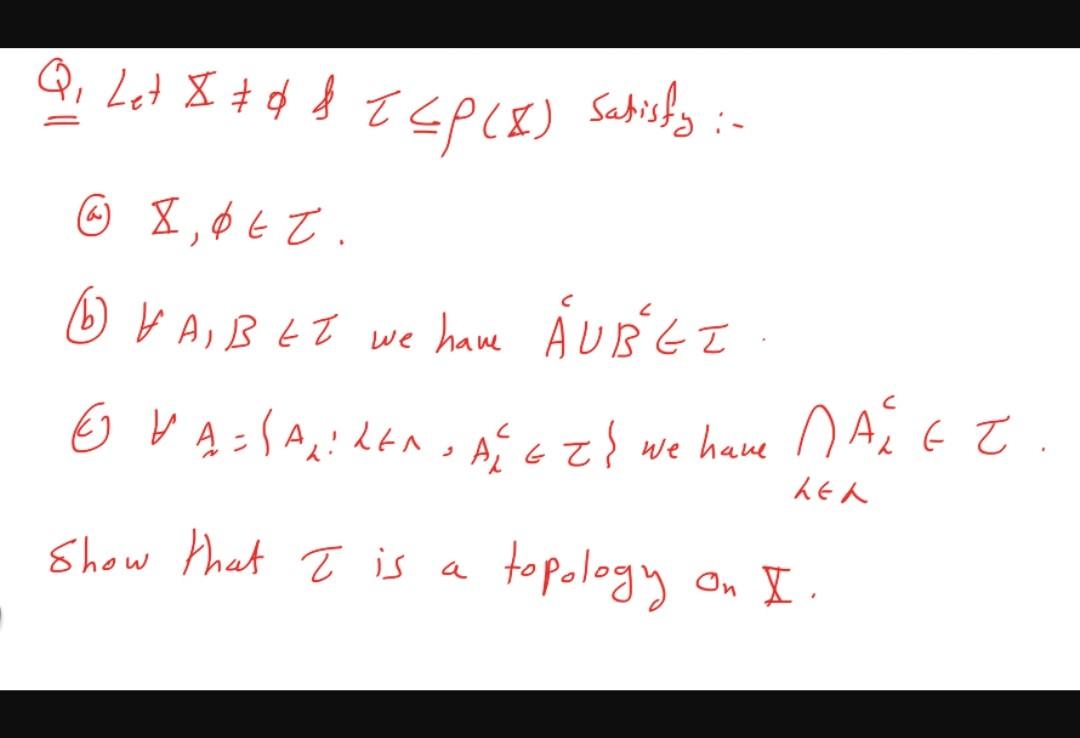 Q, Let X ≠ φ & τ ⊆ P(X) satisfy :-
(a) X, φ ∈ τ.
(b) ∀ A, B ∈ τ we have Aᶜ ∪ Bᶜ ∈ τ.
(c) ∀ A̰ = {A_λ : λ ∈ Λ, A_λᶜ ∈ τ} we have ⋂_{λ∈Λ} A_λᶜ ∈ τ.
Show that τ is a topology on X.